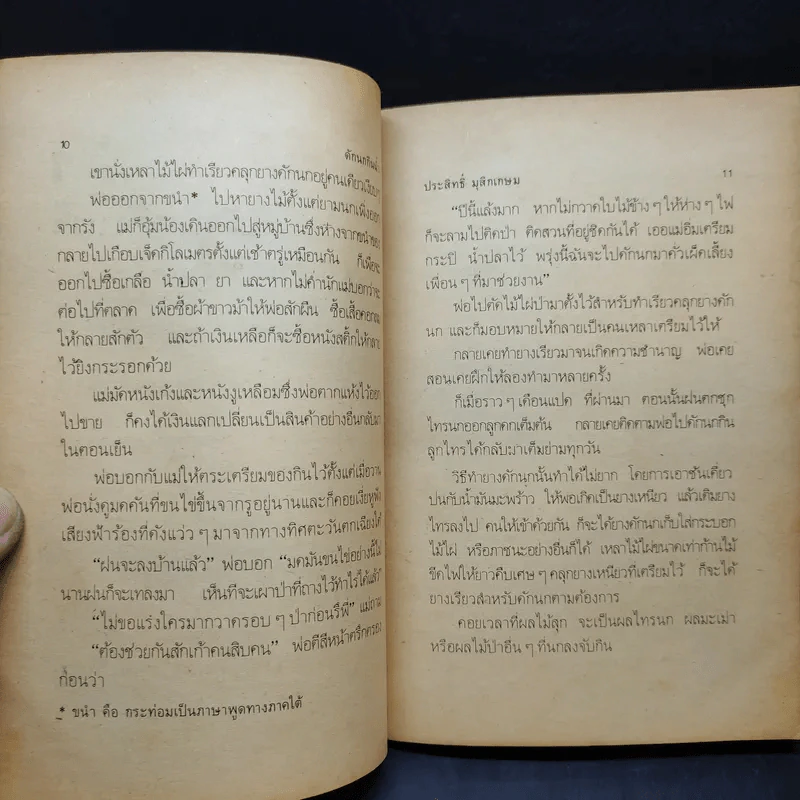 ๑๐
ดักนกกินน้ำ
เขานั่งเหลาไม้ไผ่ทำเรียวคลุกยางดักนกอยู่คนเดียวเงียบๆ
พ่อออกจากขนำ* ไปหายางไม้ตั้งแต่ยามนกเพิ่งออก
จากรัง แม่ก็อุ้มน้องเดินออกไปสู่หมู่บ้านซึ่งห่างจากขนำของ
กลายไปเกือบเจ็ดกิโลเมตรตั้งแต่เช้าตรู่เหมือนกัน ก็เพื่อจะ
ออกไปซื้อเกลือ น้ำปลา ยา และหากไม่ค่ำนักแม่บอกว่าจะ
ต่อไปที่ตลาด เพื่อซื้อผ้าขาวม้าให้พ่อสักผืน ซื้อเสื้อคอกลม
ให้กลายสักตัว และถ้าเงินเหลือก็จะซื้อหนังสติ๊กให้กลาย
ไว้ยิงกระรอกด้วย
แม่มัดหนังเก้งและหนังงูเหลือมซึ่งพ่อตากแห้งไว้ออก
ไปขาย ก็คงได้เงินแลกเปลี่ยนเป็นสินค้าอย่างอื่นกลับมา
ในตอนเย็น
พ่อบอกกับแม่ให้ตระเตรียมของกินไว้ตั้งแต่เมื่อวาน
พ่อนั่งดูมดคันที่ขนไข่ขึ้นจากรูอยู่นานและก็คอยเงี่ยหูฟัง
เสียงฟ้าร้องที่ดังแว่วๆ มาจากทางทิศตะวันตกเฉียงใต้
“ฝนจะลงบ้านแล้ว” พ่อบอก “มดมันขนไข่อย่างนี้ไม่
นานฝนก็จะเทลงมา เห็นทีจะเผาป่าที่ถางไว้ทำไร่ได้แล้ว”
“ไม่ขอแรงใครมากวาดรอบๆ ป่าก่อนรึพี่” แม่ถาม
“ต้องช่วยกันสักเก้าคนสิบคน” พ่อตีสีหน้าตรึกตรอง
ก่อนว่า
* ขนำ คือ กระท่อมเป็นภาษาพูดทางภาคใต้
ประสิทธิ์ มุสิกเกษม
๑๑
“ปีนี้แล้งมาก หากไม่กวาดใบไม้ข้างๆ ให้ห่างๆ ไฟ
ก็จะลามไปติดป่า ติดสวนที่อยู่ชิดกันได้ เออแม่อิ่มเตรียม
กระปิ น้ำปลาไว้ พรุ่งนี้ฉันจะไปดักนกมาคั่วเผ็ดเลี้ยง
เพื่อนๆ ที่มาช่วยงาน”
พ่อไปตัดไม้ไผ่ป่ามาตั้งไว้สำหรับทำเรียวคลุกยางดัก
นก และก็มอบหมายให้กลายเป็นคนเหลาเตรียมไว้ให้
กลายเคยทำยางเรียวมาจนเกิดความชำนาญ พ่อเคย
สอนเคยฝึกให้ลองทำมาหลายครั้ง
ก็เมื่อราวๆ เดือนแปด ที่ผ่านมา ตอนนั้นฝนตกชุก
ไทรนกออกลูกดกเต็มต้น กลายเคยติดตามพ่อไปดักนกกิน
ลูกไทรได้กลับมาเต็มย่ามทุกวัน
วิธีทำยางดักนกนั้นทำได้ไม่ยาก โดยการเอาชันเคี่ยว
ปนกับน้ำมันมะพร้าว ให้พอเกิดเป็นยางเหนียว แล้วเติมยาง
ไทรลงไป คนให้เข้าด้วยกัน ก็จะได้ยางดักนกเก็บใส่กระบอก
ไม้ไผ่ หรือภาชนะอย่างอื่นก็ได้ เหลาไม้ไผ่ขนาดเท่าก้านไม้
ขีดไฟให้ยาวคืบเศษๆ คลุกยางเหนียวที่เตรียมไว้ ก็จะได้
ยางเรียวสำหรับดักนกตามต้องการ
คอยเวลาที่ผลไม้สุก จะเป็นผลไทรนก ผลมะเม่า
หรือผลไม้ป่าอื่นๆ ที่นกลงจับกิน